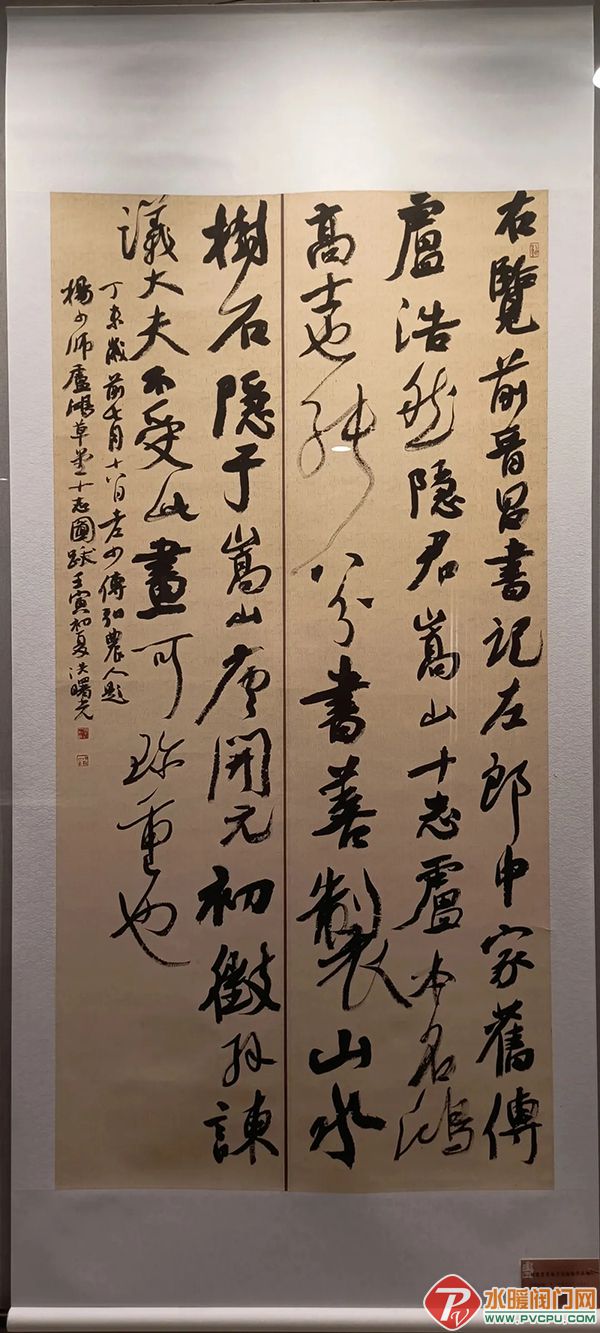 右覽前晉昌書記左郎中家舊傳
盧浩然隱君嵩山十志盧本名鴻
高士也能八分書善製山水
樹石隱于嵩山唐開元初徵拜諫
議大夫不受此畫可珍重也
丁未歲前七月十八日老少傅弘農人題
楊少師盧鴻草堂十志圖跋壬寅初夏洪曙光
水暖阀门网
WWW.PVCPU.COM